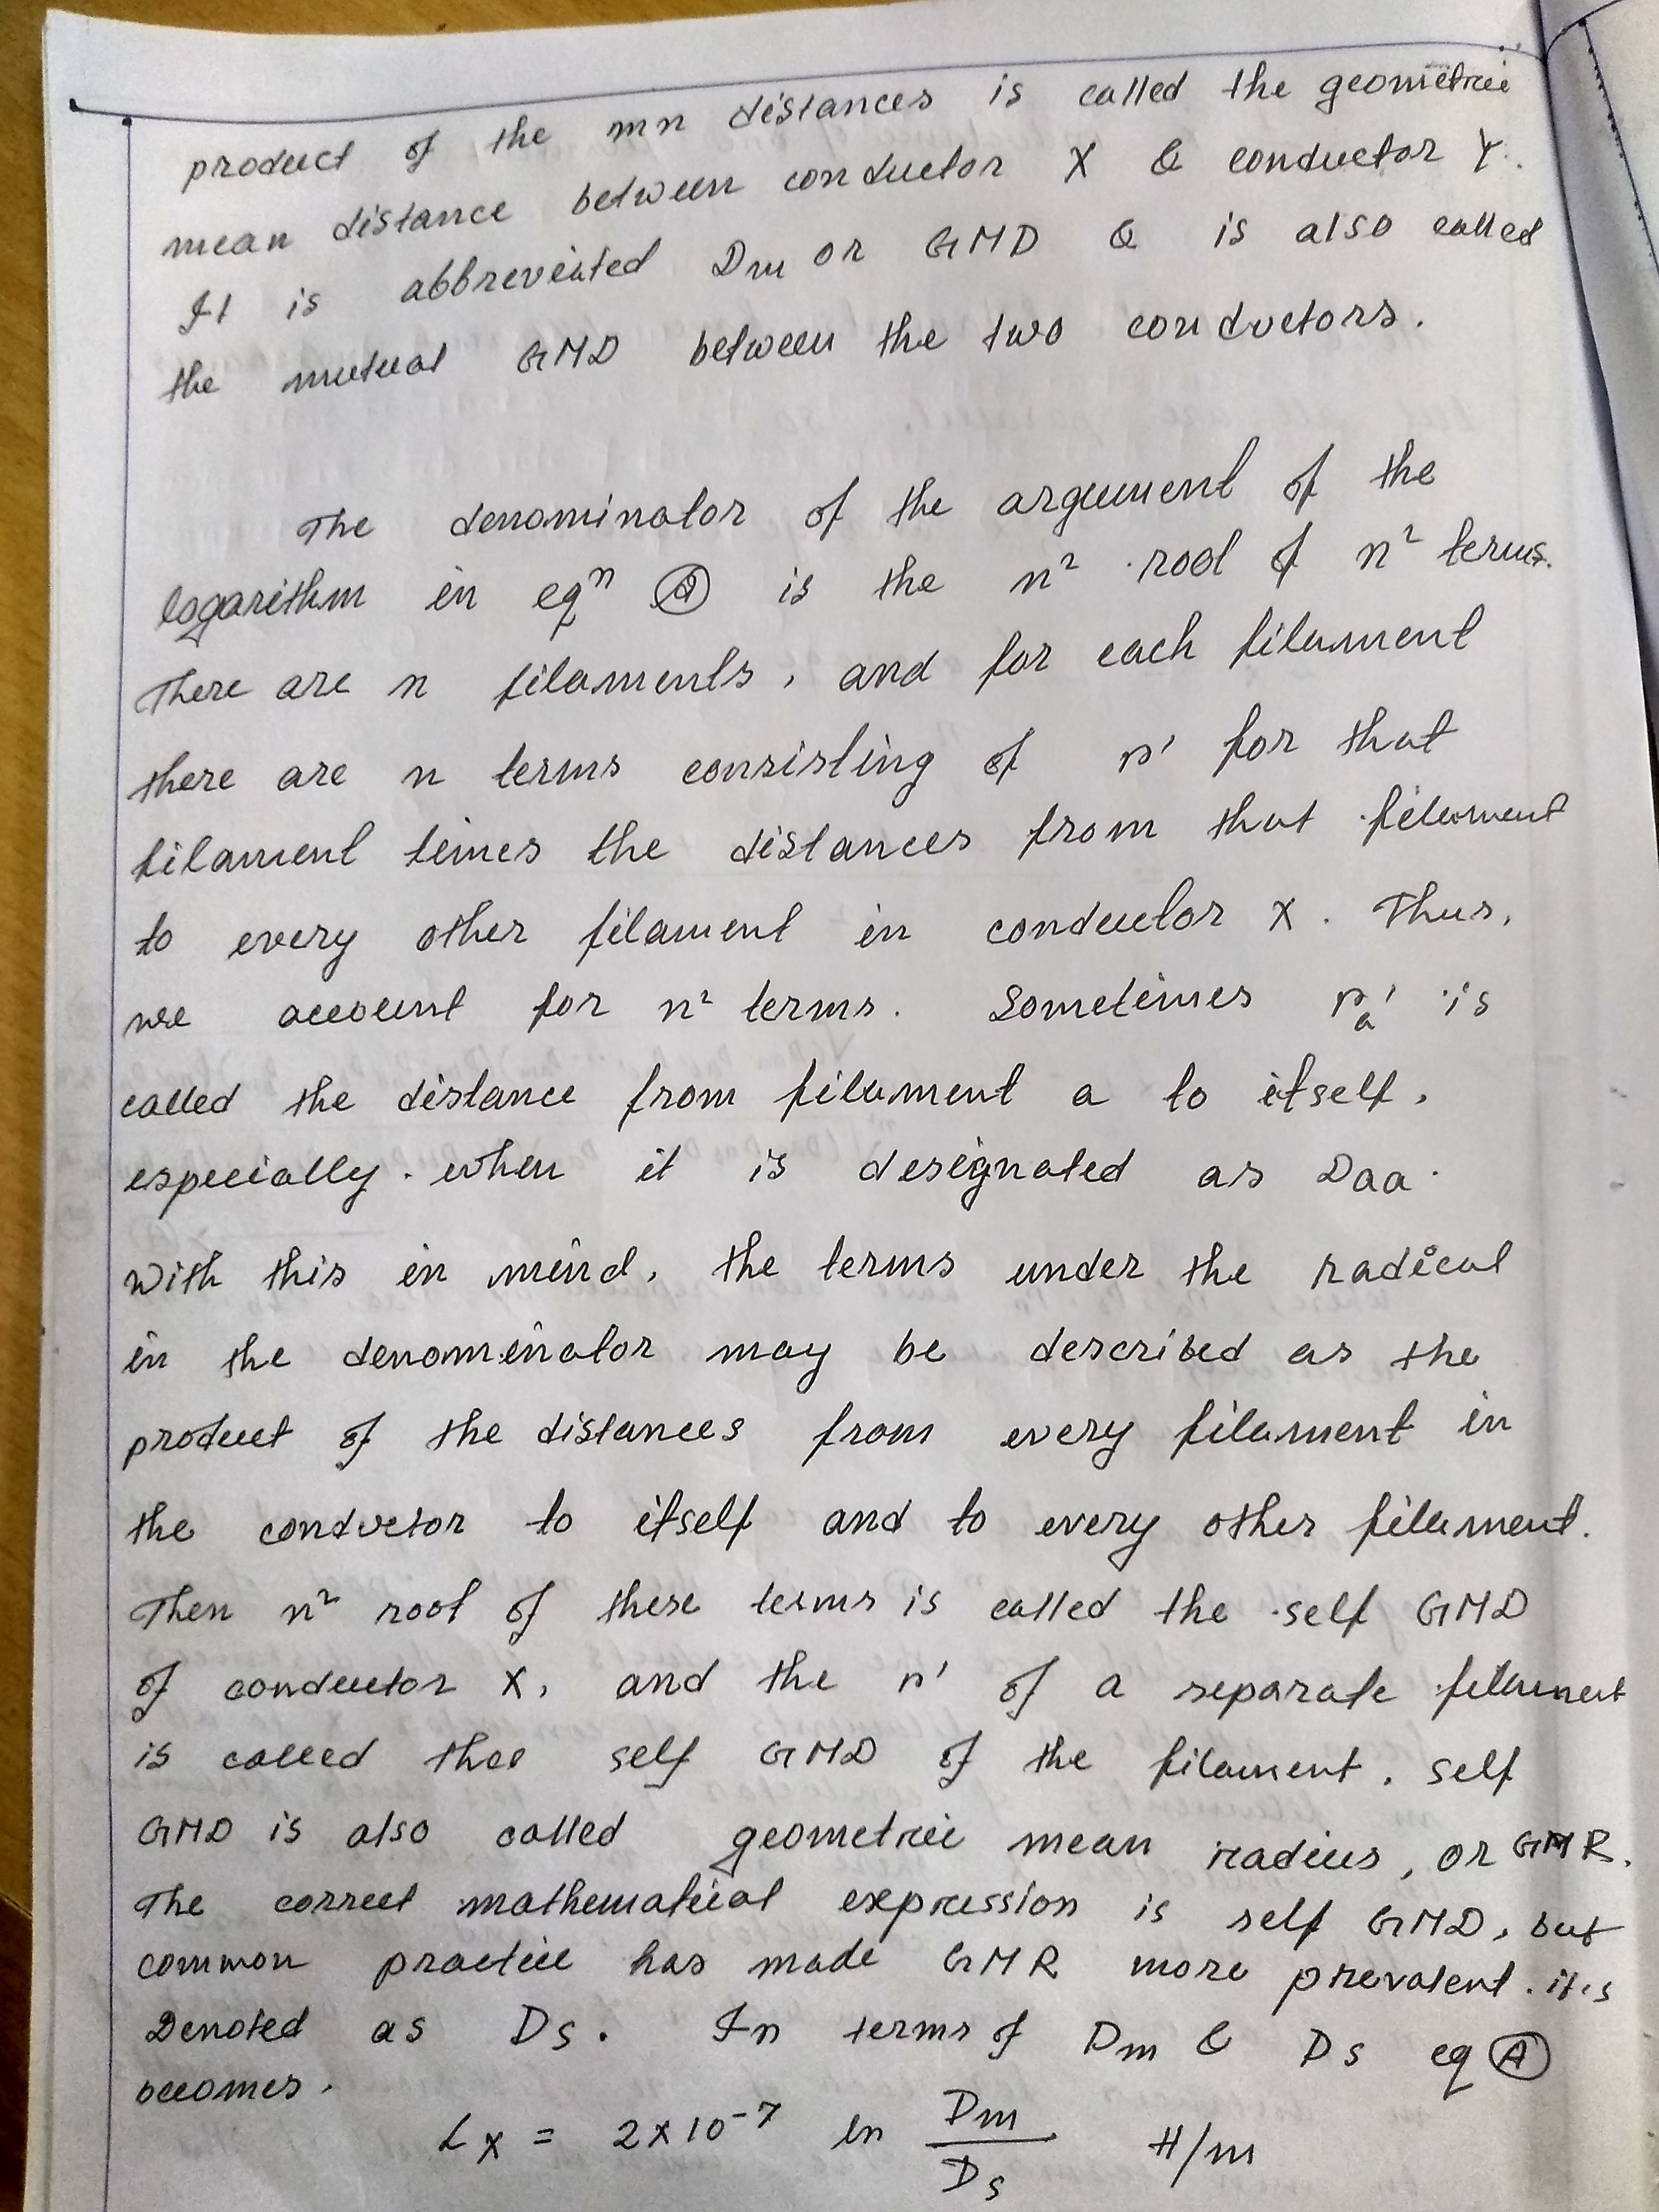 product of the mn distances is called the geometric
mean distance between conductor X & conductor Y.
It is abbreviated Dm or GMD & is also called
the mutual GMD between the two conductors.
The denominator of the argument of the
logarithm in eqⁿ Ⓐ is the n² root of n² terms.
There are n filaments, and for each filament
there are n terms consisting of r' for that
filament times the distances from that filament
to every other filament in conductor X. Thus,
we account for n² terms. Sometimes ra' is
called the distance from filament a to itself,
especially when it is designated as Daa.
With this in mind, the terms under the radical
in the denominator may be described as the
product of the distances from every filament in
the conductor to itself and to every other filament.
Then n² root of these terms is called the self GMD
of conductor X, and the r' of a separate filament
is called the self GMD of the filament. self
GMD is also called geometric mean radius, or GMR.
The correct mathematical expression is self GMD, but
common practice has made GMR more prevalent. it is
Denoted as Ds. In terms of Dm & Ds eq Ⓐ
becomes.
Lx = 2×10⁻⁷ ln Dm/Ds H/m